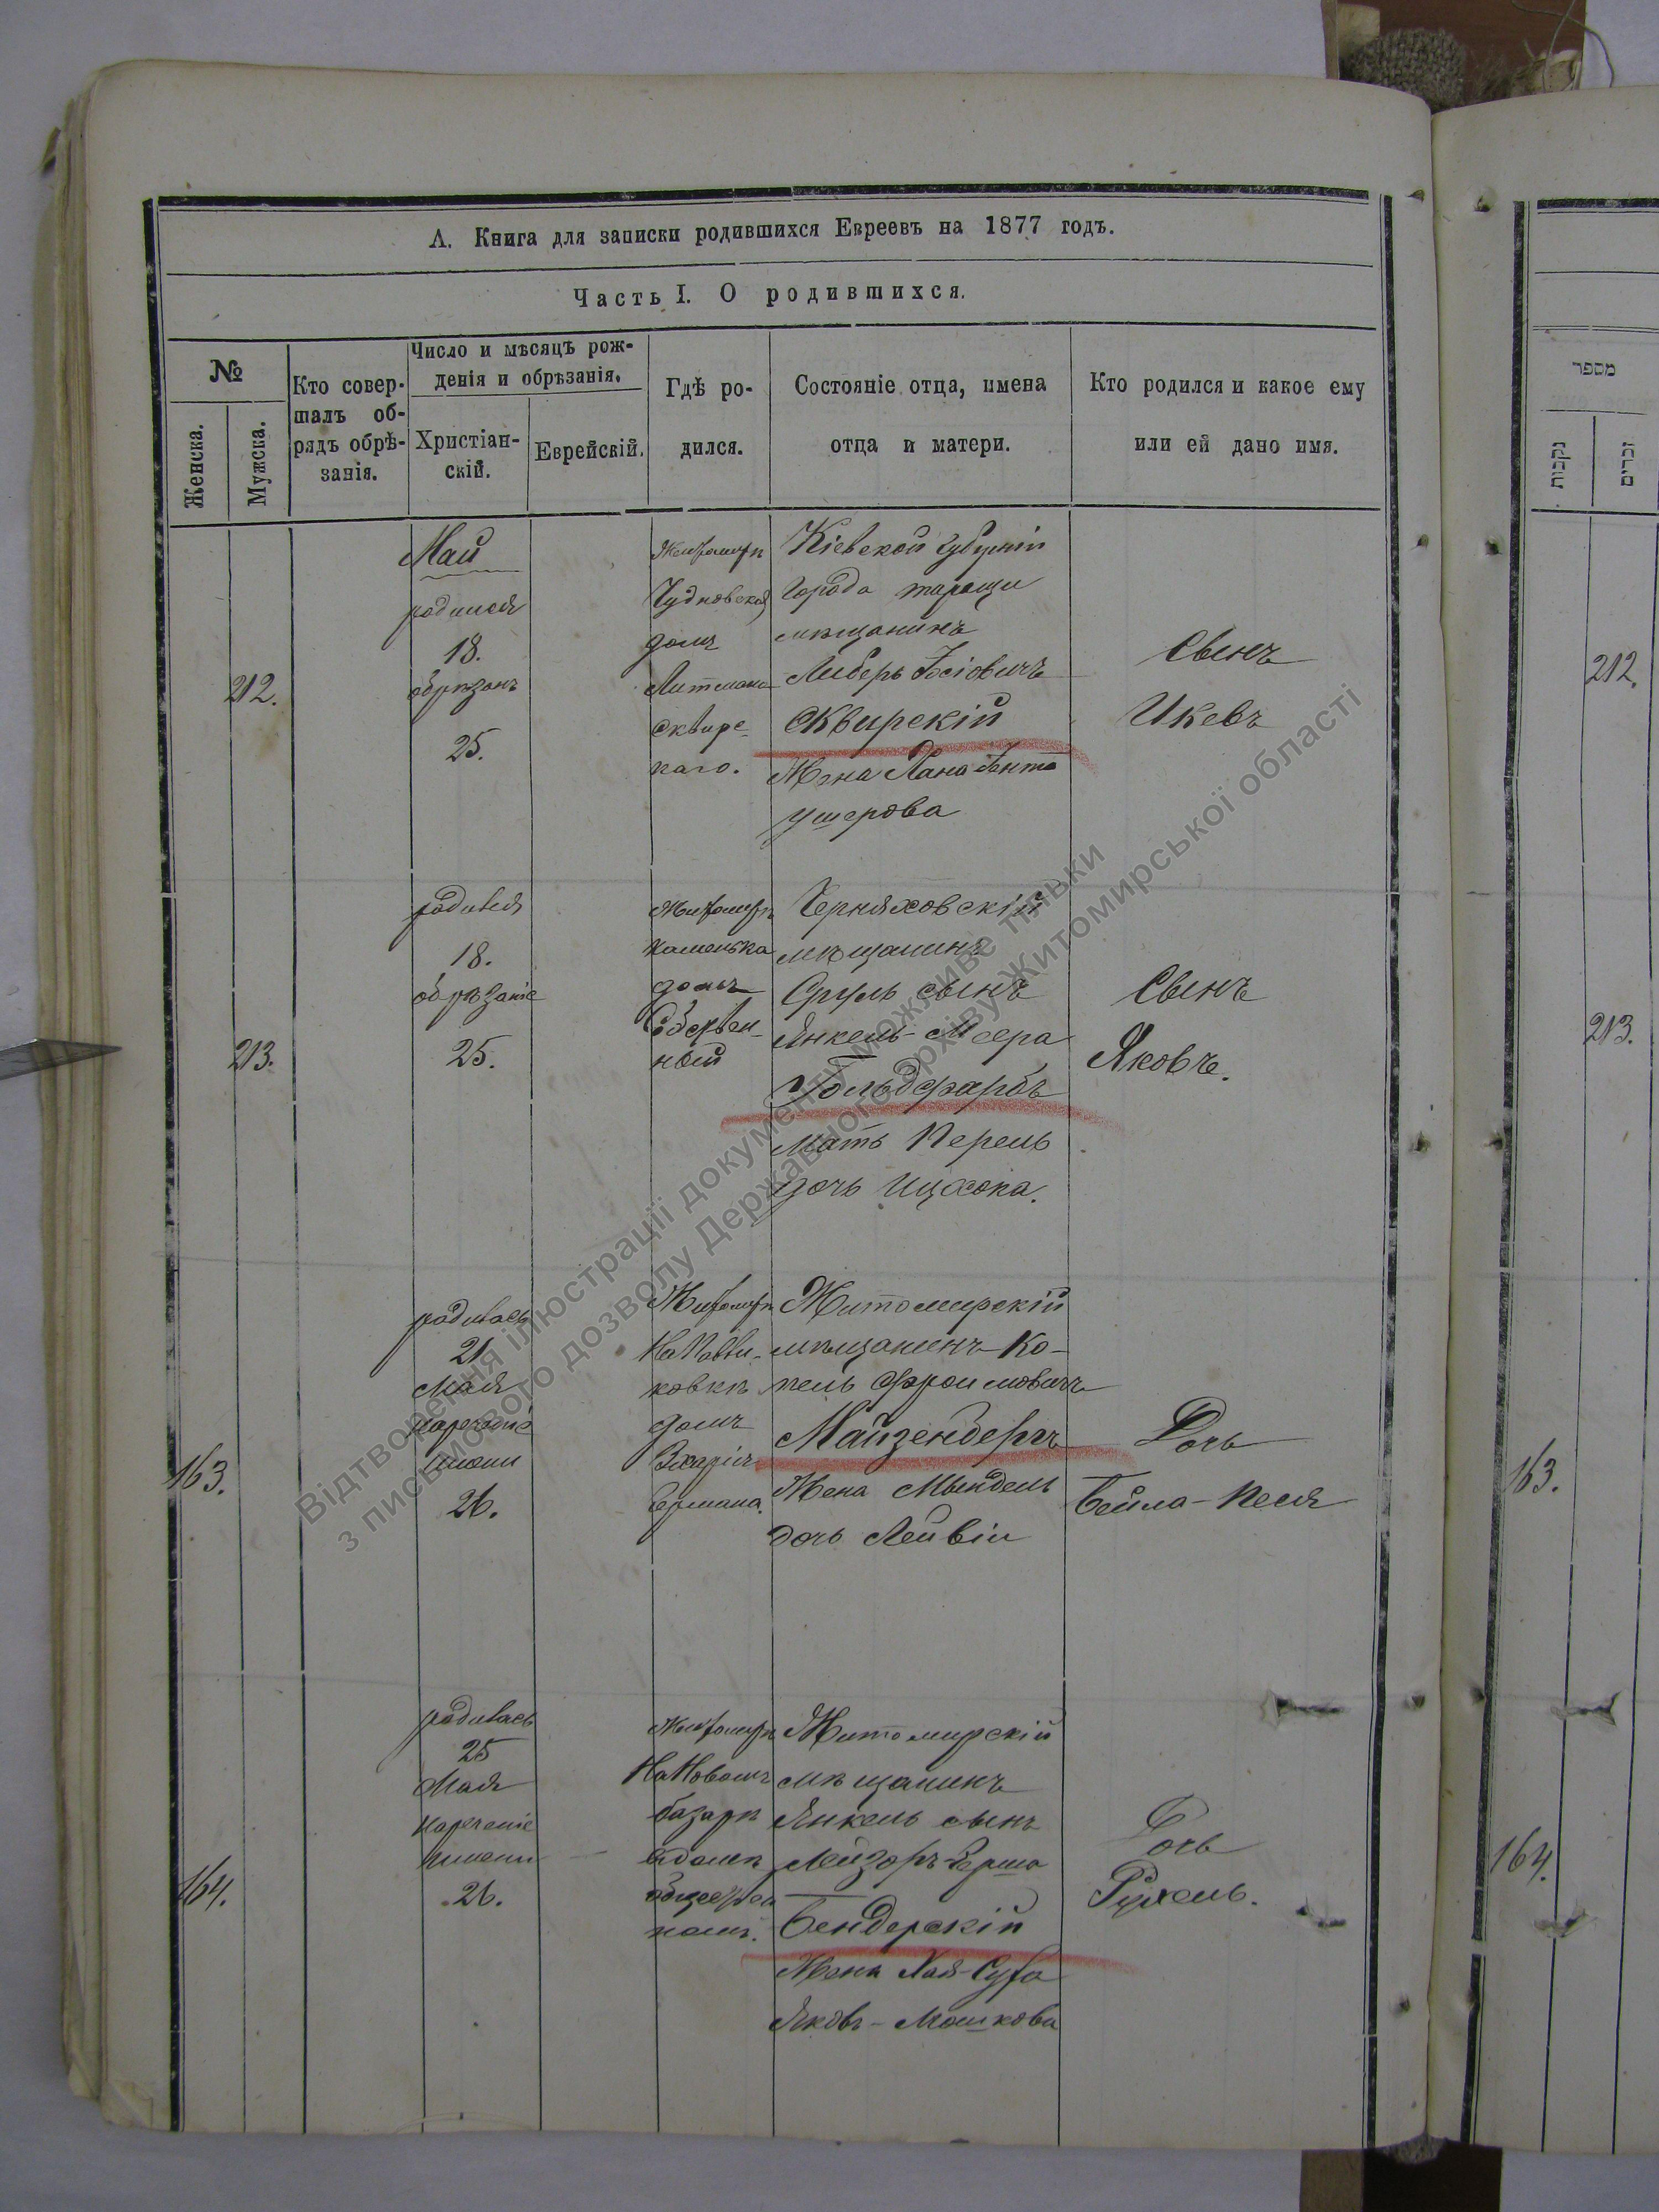 А. Книга для записки родившихся Евреевъ на 1877 годъ.
Часть I. О родившихся.
№
Женска.
Мужска.
Кто совер-
шалъ об-
рядъ обрѣ-
занія.
Число и мѣсяцъ рож-
денія и обрѣзанія.
Христіан-
скій.
Еврейскій.
Гдѣ ро-
дился.
Состояніе отца, имена
отца и матери.
Кто родился и какое ему
или ей дано имя.
מספר
נקבות
זכרים
212.
Май
родился
18.
обрѣзанъ
25.
Житомиръ
Чудновская
домъ
Литмана
Сквирс-
каго.
Кіевской Губерніи
Города таращи
мѣщанинъ
Либеръ
Сквирскій
Жена
Ушерова
Сынъ
Ицекъ
212.
213.
родился
18.
обрѣзаніе
25.
Житомиръ
каменька
домъ
Собствен-
ный
Черняховскій
мѣщанинъ
Сруль сынъ
Янкель-Меера
Гольдфарбъ
Мать Перель
дочь Ицхока.
Сынъ
Яковъ.
213.
163.
родилась
21
Мая
нареченіе
имени
26.
Житомиръ
На
домъ
Германа.
Житомирскій
мѣщанинъ Ко-
пель Фроимовичъ
Майзенбергъ
Жена Миндель
дочь Лейвіи
Дочь
Бейла-Песя
163.
164.
родилась
25
Мая
нареченіе
имени
26.
Житомиръ
На Новомъ
базарѣ
вдомѣ
Житомирскій
мѣщанинъ
Янкель сынъ
Лейзоръ-Герша
Бендерскій
Жена Хая-Сура
Яковъ-Мошкова
Дочь
Рухель.
164.
Відтворення ілюстрації документу можливе тільки
з письмового дозволу Державного архіву Житомирської області